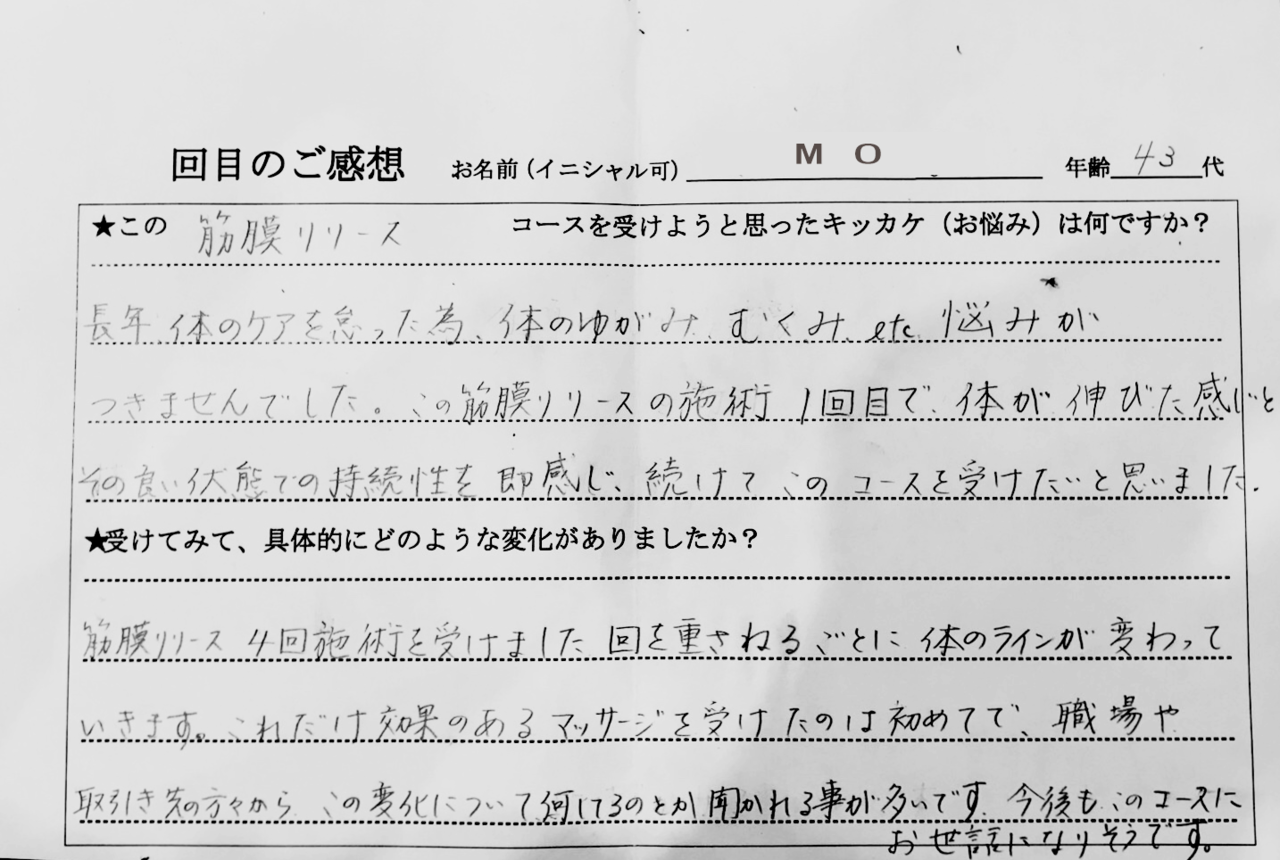 回目のご感想 お名前(イニシャル可) M O 年齢 43 代
★この 筋膜リリース コースを受けようと思ったキッカケ(お悩み)は何ですか?
長年、体のケアを怠った為、体のゆがみ、むくみ、etc 悩みが
つきませんでした。この筋膜リリースの施術 1回目で、体が伸びた感じと
その良い状態での持続性を即感じ、続けてこのコースを受けたいと思いました。
★受けてみて、具体的にどのような変化がありましたか?
筋膜リリース 4回施術を受けました 回を重さねるごとに 体のラインが 変わって
いきます。これだけ効果のあるマッサージを受けたのは初めてで、職場や
取引き先の方々から、この変化について何してるのとか聞かれる事が多いです。今後もこのコースに
お世話になりそうです。